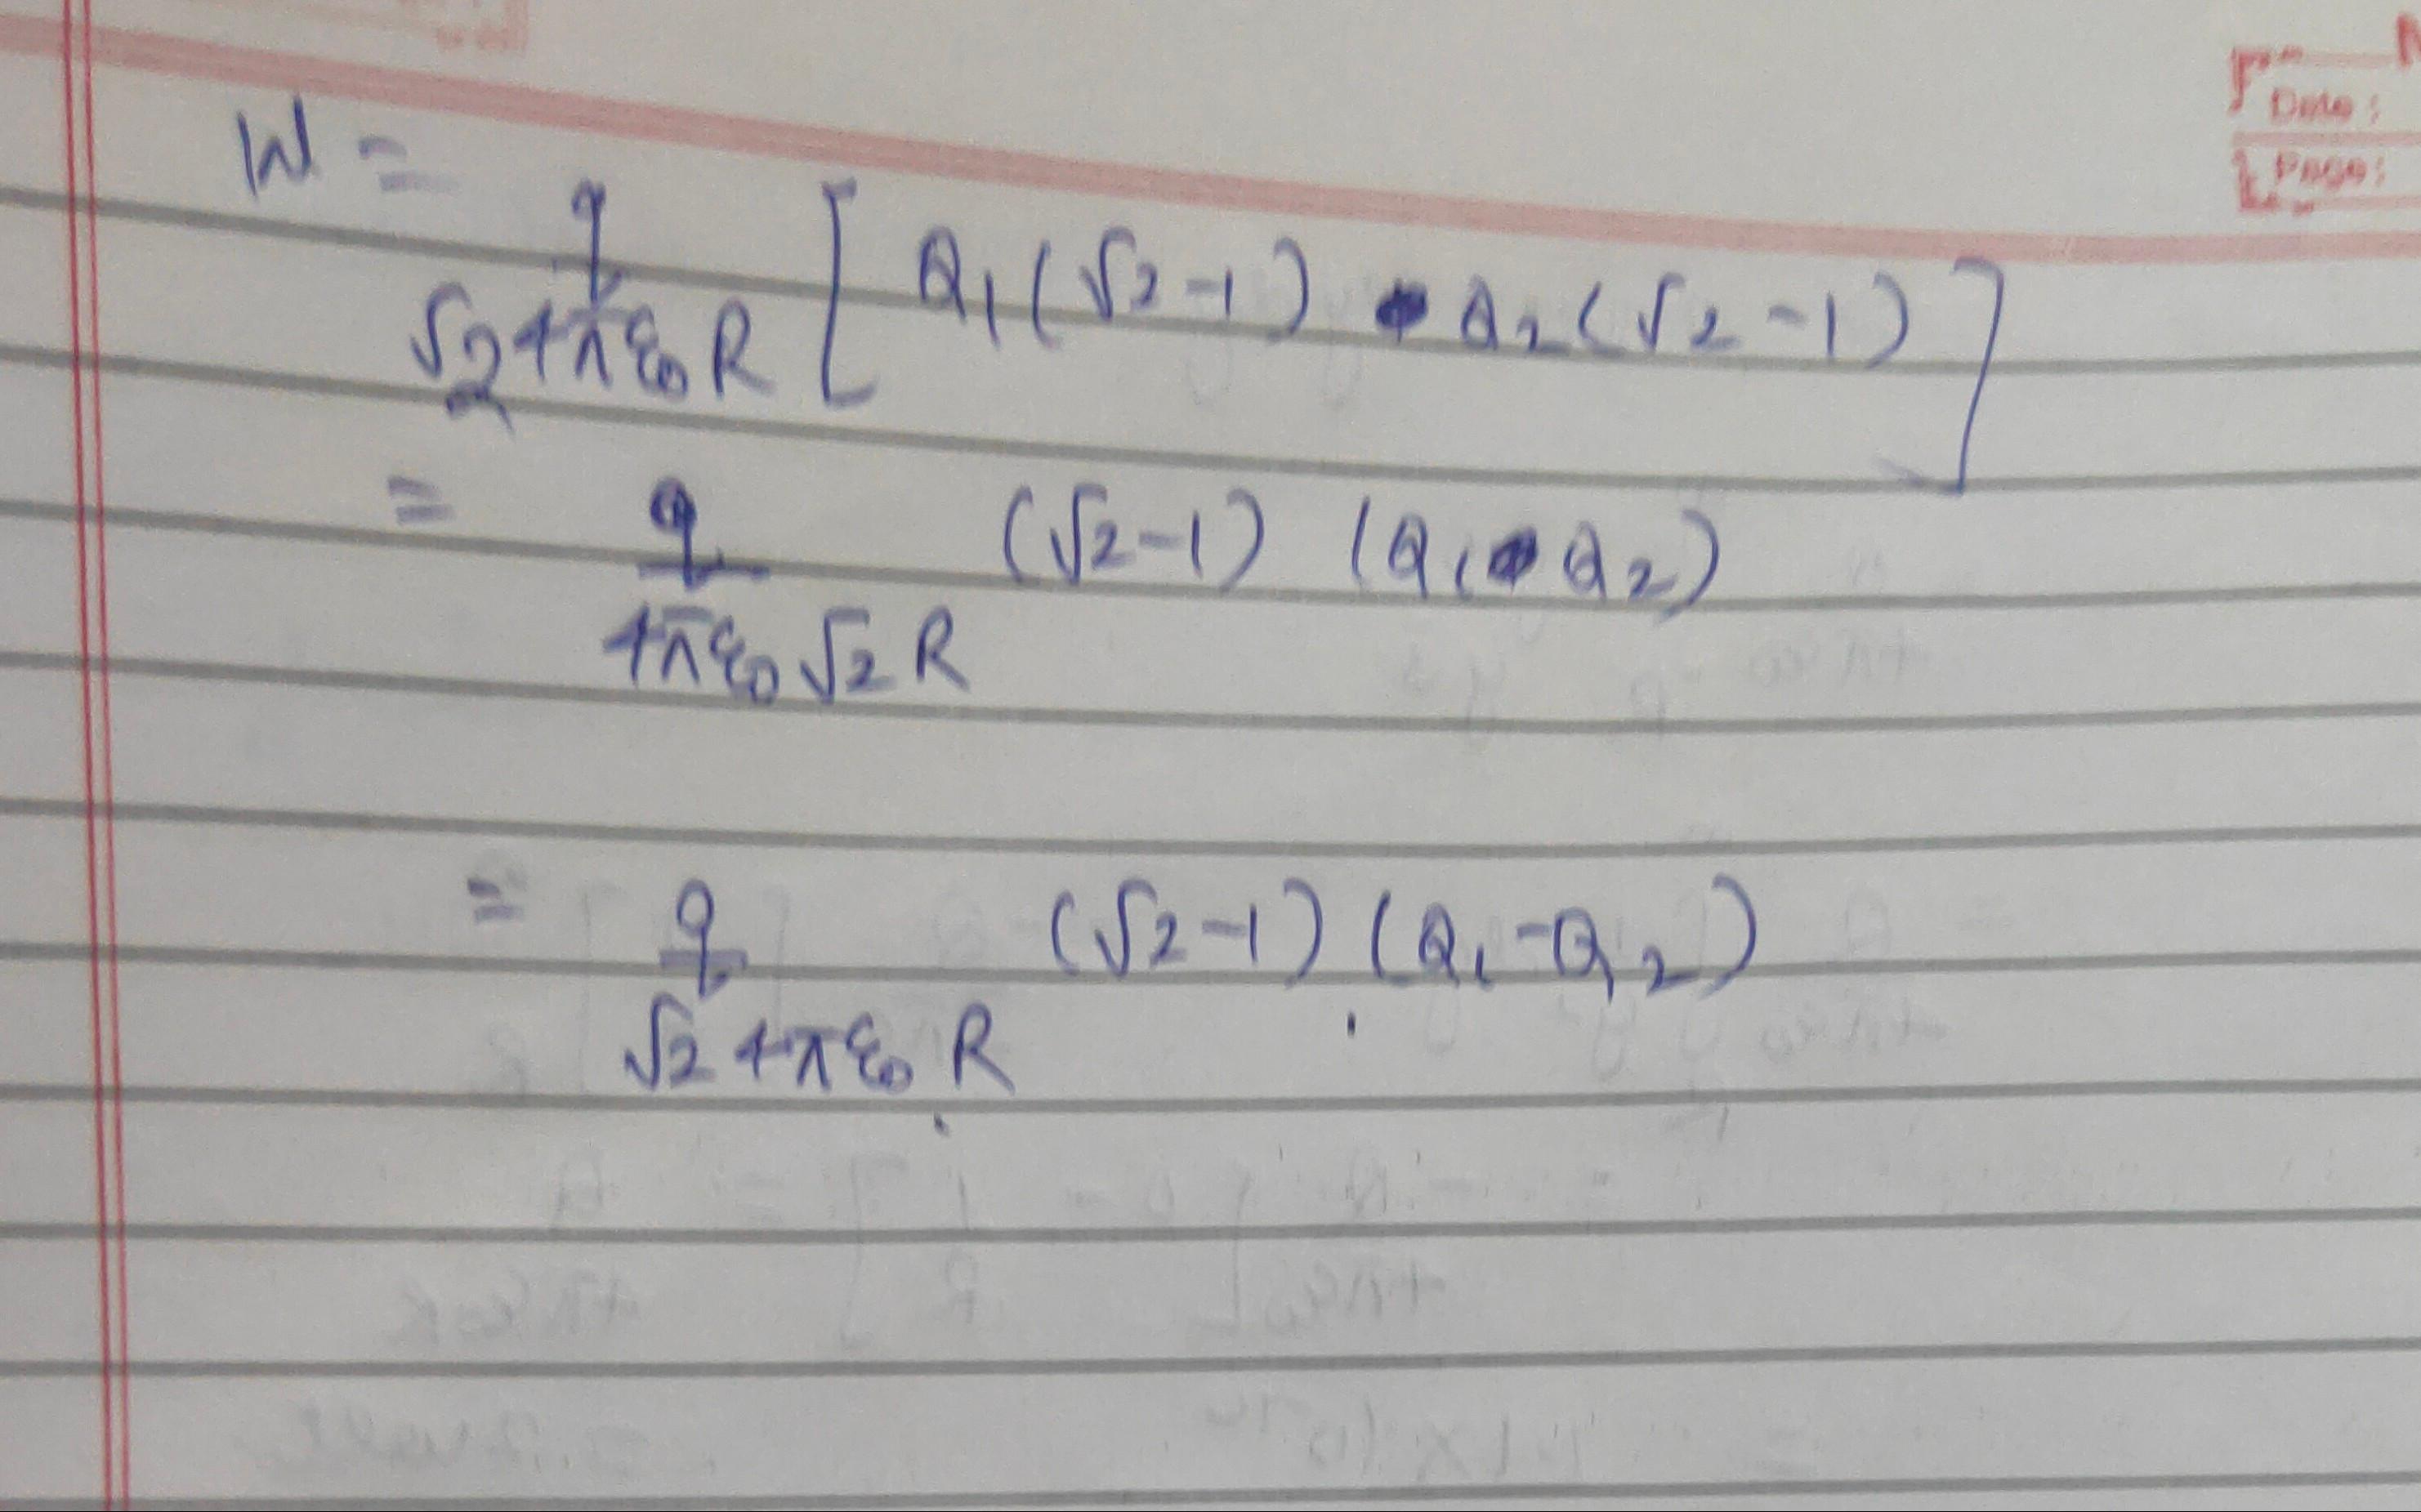 Date:
Page:
W = q / √2 4πε₀R [ Q₁(√2-1) - Q₂(√2-1) ]
= q / 4πε₀√2R (√2-1) (Q₁ - Q₂)
= q / √2 4πε₀R (√2-1) (Q₁-Q₂)